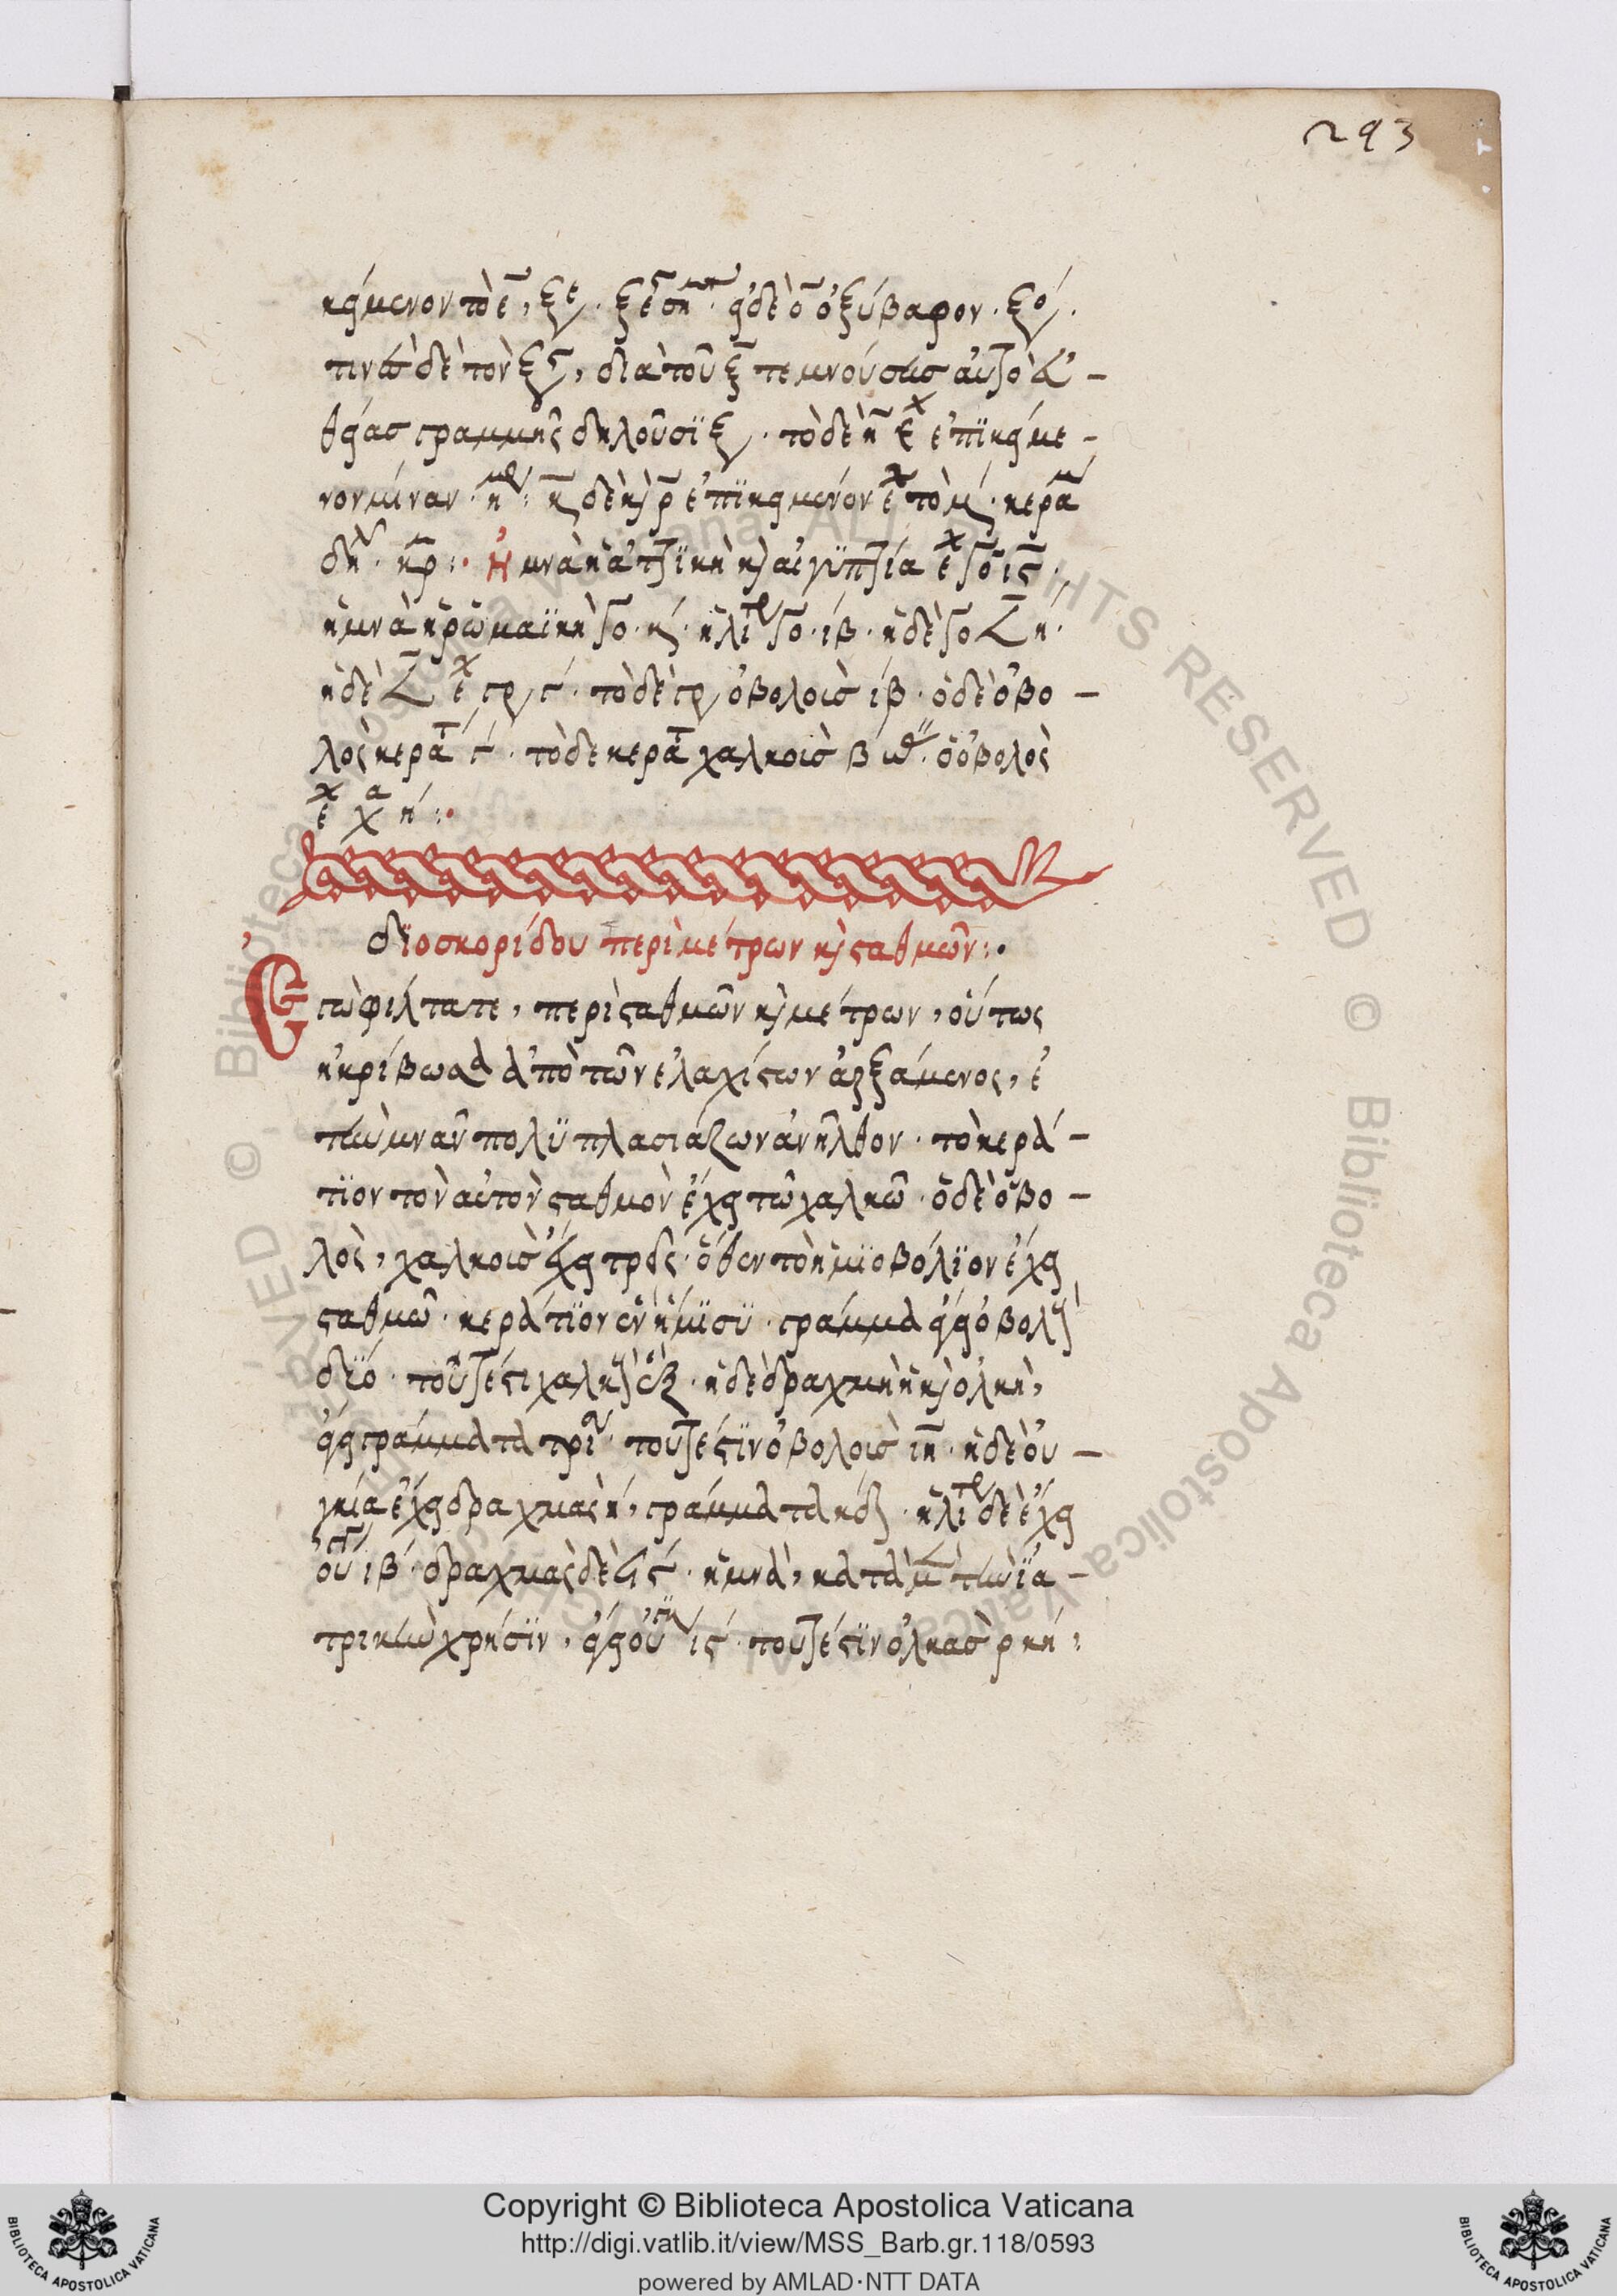 293
κείμενον τὸ ε̅, ξε. ξέση μη. εἰ δὲ ο̅ ὀξύβαφον. ξο.
τινὲς δὲ τὸν ξς, διὰ τοῦ ξ̅ τεμνούσης αὐτὸ εὐ–
θείας γραμμῆς δηλοῦσϊ ξ. τὸ δὲ η̅ ε ἐπϊκείμε–
νον μίναν. δὲ κὶ ρ̅ ἐπϊκειμένον τὸ μ. κερα
δη. ηρ :· Ἡ μνὰ ἡ ἀττϊκὴ κὶ αἰγϋπτία ε χ ις.
ἡ μνὰ ἡ ῥωμαϊκὴ κ. ἡ λι ιβ. ἡ δὲ η.
ἡ δὲ ε χ γρ ς. τὸ δὲ γρ ὀβολοὺσ ιβ. ὁ δὲ ὀβο–
λὸς κερατ ς. τὸ δε κερατ χαλκοὺσ β. ὁ ὀβολὸς
ε χ χα η :·
δϊοσκορίδου περὶ μέτρων κὶ σταθμῶν :·
Ἐγὼ φίλτατε, περὶ σταθμῶν κὶ μέτρων, οὕτως
ἠκρίβωσα ἀπὸ τῶν ἐλαχίστων ἀρξάμενος, ἐ
τὴν μνᾶν πολϋπλασιάζων ἀνῆλθον. τὸ κερά–
τϊον τὸν αὐτὸν σταθμὸν ἔχει τῶ χαλκῶ. ὁ δὲ ὀβο–
λὸς, χαλκοὺσ ἔχει τρεῖς. ὅθεν τὸ ἡμϊοβόλϊον ἔχει
σταθμῶ. κεράτϊον ἓν ἥμϊσϋ. γράμμα ἄγει ὀβολοὺς
δϋό. τουτέστι χαλκοὺς ἓξ. ἡ δὲ δραχμὴ ἢ κὶ ὁλκὴ,
ἄγει γράμματα τρία. τουτέστϊν ὀβολοὺσ ιη̅. ἡ δὲ οὐ–
γκία ἔχει δραχμὰς η, γράμματα κδ. ἡ λιτρ δὲ ἔχει
οὐγ ιβ. δραχμὰς δὲ ϟς. ἡ μνὰ, κατὰ μ̅ τὴν ἰ̈α–
τρικὴν χρῆσϊν, ἄγει οὐγ ις. τουτέστϊν ὁλκασ ρκη,
Copyright © Biblioteca Apostolica Vaticana
http://digi.vatlib.it/view/MSS_Barb.gr.118/0593
powered by AMLAD·NTT DATA
BIBLIOTECA APOSTOLICA VATICANA
BIBLIOTECA APOSTOLICA VATICANA